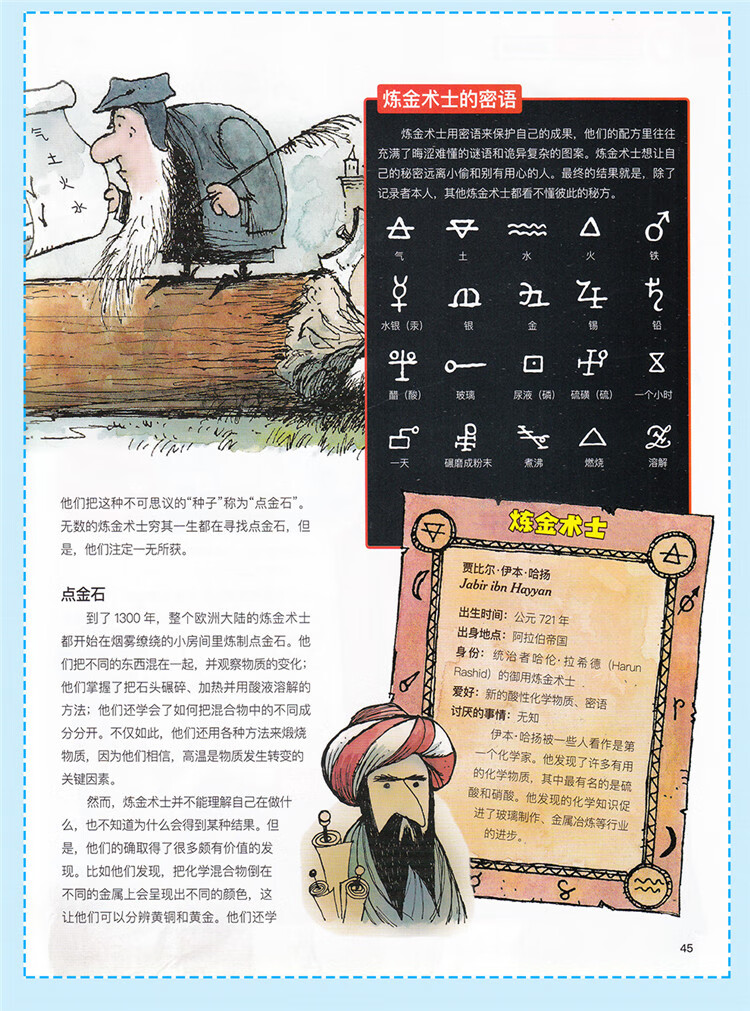 气
土
火
水
炼金术士的密语
炼金术士用密语来保护自己的成果，他们的配方里往往
充满了晦涩难懂的谜语和诡异复杂的图案。炼金术士想让自
己的秘密远离小偷和别有用心的人。最终的结果就是，除了
记录者本人，其他炼金术士都看不懂彼此的秘方。
气 土 水 火 铁
水银（汞） 银 金 锡 铅
醋（酸） 玻璃 尿液（磷） 硫磺（硫） 一个小时
一天 碾磨成粉末 煮沸 燃烧 溶解
他们把这种不可思议的“种子”称为“点金石”。
无数的炼金术士穷其一生都在寻找点金石，但
是，他们注定一无所获。
点金石
到了 1300 年，整个欧洲大陆的炼金术士
都开始在烟雾缭绕的小房间里炼制点金石。他
们把不同的东西混在一起，并观察物质的变化；
他们掌握了把石头碾碎、加热并用酸液溶解的
方法；他们还学会了如何把混合物中的不同成
分分开。不仅如此，他们还用各种方法来煅烧
物质，因为他们相信，高温是物质发生转变的
关键因素。
然而，炼金术士并不能理解自己在做什
么，也不知道为什么会得到某种结果。但
是，他们的确取得了很多颇有价值的发
现。比如他们发现，把化学混合物倒在
不同的金属上会呈现出不同的颜色，这
让他们可以分辨黄铜和黄金。他们还学
炼金术士
贾比尔·伊本·哈扬
Jabir ibn Hayyan
出生时间：公元 721 年
出身地点：阿拉伯帝国
身份：统治者哈伦·拉希德（Harun
Rashid）的御用炼金术士
爱好：新的酸性化学物质、密语
讨厌的事情：无知
伊本·哈扬被一些人看作是第
一个化学家。他发现了许多有用
的化学物质，其中最有名的是硫
酸和硝酸。他发现的化学知识促
进了玻璃制作、金属冶炼等行业
的进步。
45